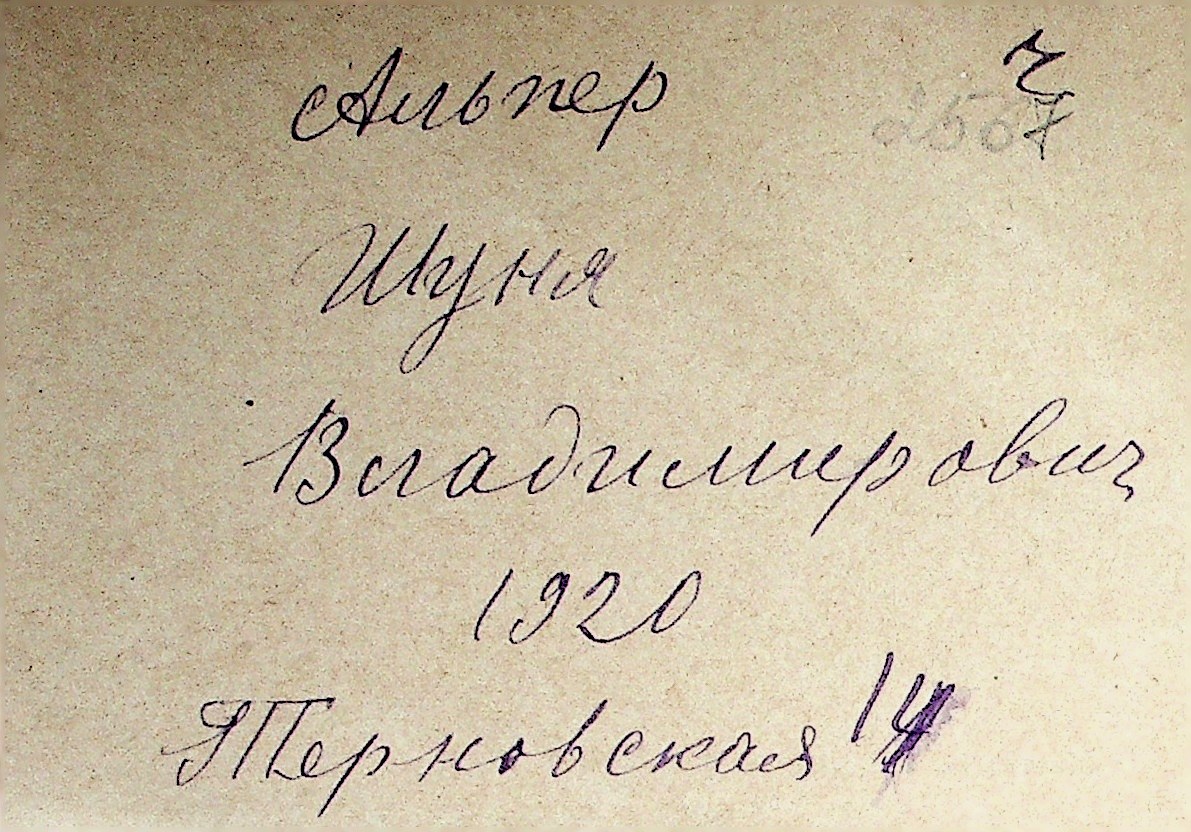 Альпер ч
2567
Шуня
Владимирович
1920
Терновская 14